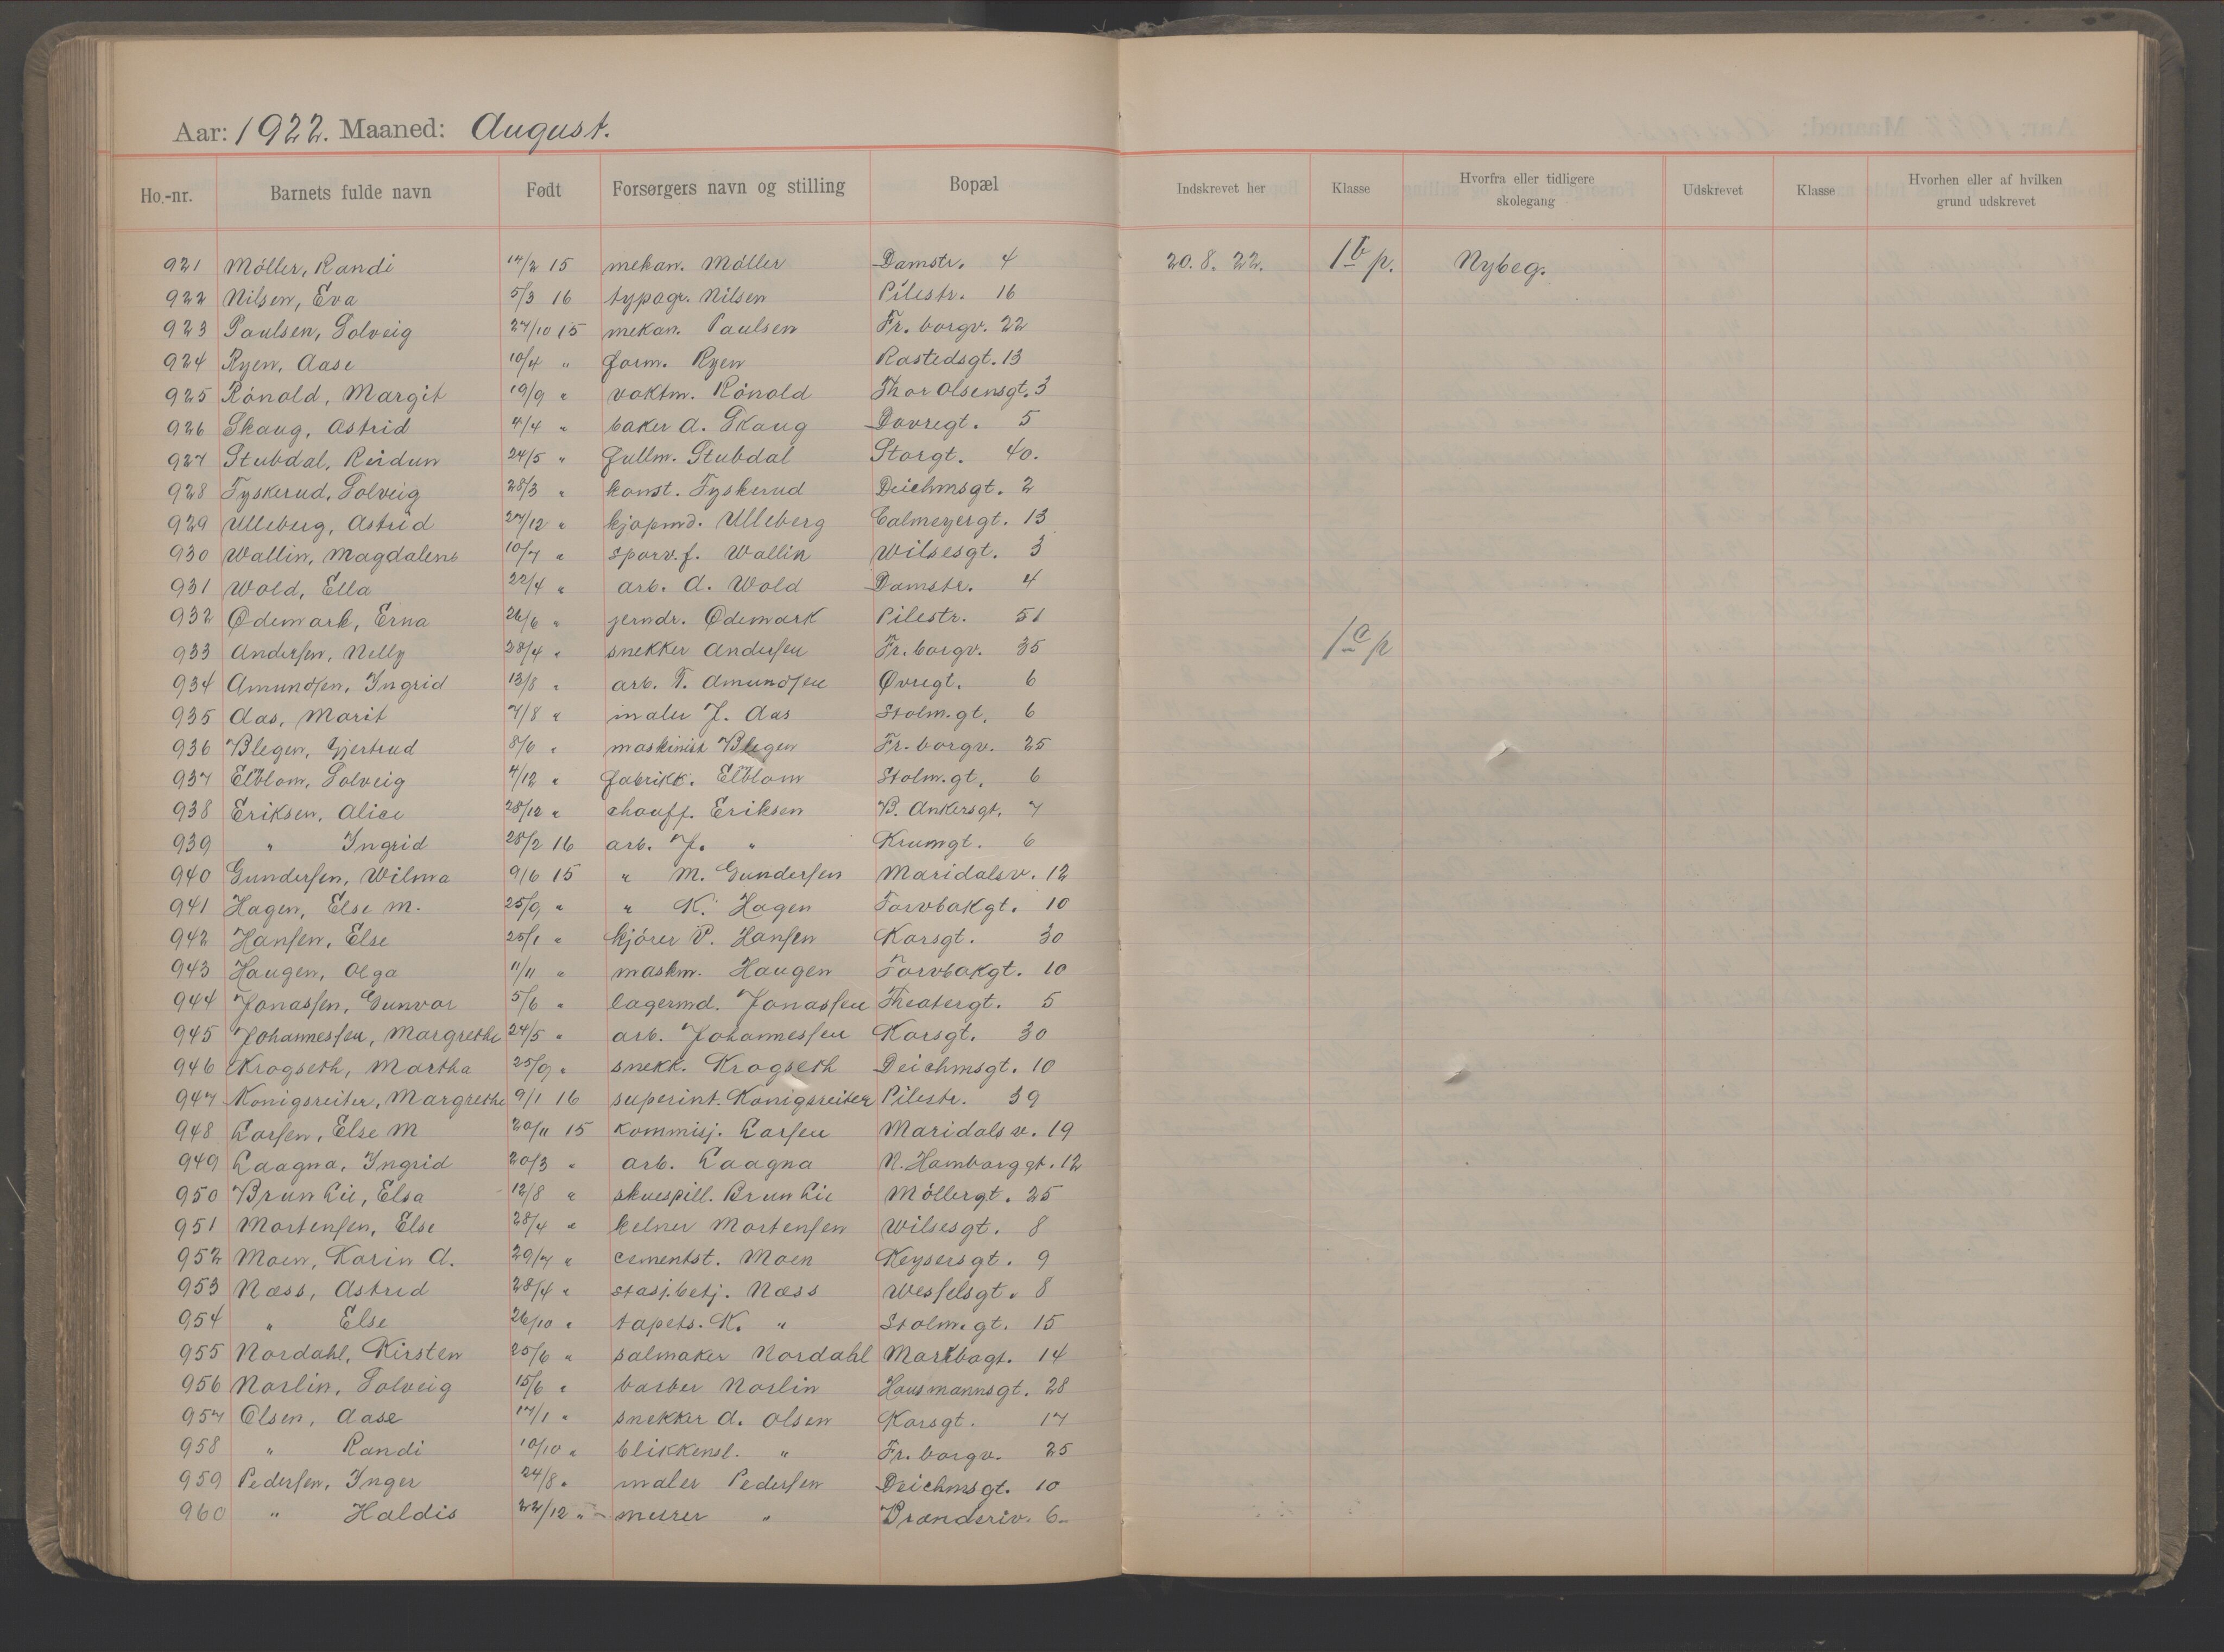 Aar: 1922. Maaned: August.
Ho.-nr. Barnets fulde navn Født Forsørgers navn og stilling Bopæl Indskrevet her Klasse Hvorfra eller tidligere skolegang Udskrevet Klasse Hvorhen eller af hvilken grund udskrevet
921 Möller, Randi 14/2 15 mekan. Möller Damstr. 4 20. 8. 22. 1 b p. Nybeg.
922 Nilsen, Eva 5/3 16 typogr. Nilsen Pilestr. 16
923 Paulsen, Solveig 27/10 15 mekan. Paulsen Fr. borgv. 22
924 Ryen, Aase 10/4 " form. Ryen Rastedsgt. 13
925 Rönold, Margit 19/9 " vaktm. Rönold Thor Olsensgt. 3
926 Skaug, Astrid 4/4 " baker A. Skaug Dovregt. 5
927 Stubdal, Reidun 24/5 " fullm. Stubdal Storgt. 40.
928 Tyskerud, Solveig 28/3 " konst. Tyskerud Deichmsgt. 2
929 Ulleberg, Astrid 27/12 " kjøpmd. Ulleberg Calmeyergt. 13
930 Wallin, Magdalene 10/7 " sporv.f. Wallin Wilsesgt. 3
931 Wold, Ella 22/4 " arb. A. Wold Damstr. 4
932 Ödemark, Erna 26/6 " jerndr. Ödemark Pilestr. 51
933 Andersen, Nelly 28/4 " snekker Andersen Fr. borgv. 35 1 a p
934 Amundsen, Ingrid 13/8 " arb. T. Amundsen Øvregt. 6
935 Aas, Marit 7/8 " maler J. Aas Stolm.gt. 6
936 Blegen, Gjertrud 8/6 " maskinist Blegen Fr. borgv. 25
937 Elblom, Solveig 4/12 " fabrikk. Elblom Stolm.gt. 6
938 Eriksen, Alice 28/12 " chauff. Eriksen B. Ankersgt. 7
939 " Ingrid 28/2 16 arb. J. " Krumgt. 6
940 Gundersen, Wilma 9/6 15 " M. Gundersen Maridalsv. 12
941 Hagen, Else M. 25/9 " " K. Hagen Torvbakgt. 10
942 Hansen, Else 25/1 " kjörer P. Hansen Korsgt. 30
943 Haugen, Olga 11/11 " maskm. Haugen Torvbakgt. 10
944 Jonassen, Gunvor 5/6 " lagermd. Jonassen Theatergt. 5
945 Johannessen, Margrethe 24/5 " arb. Johannessen Korsgt. 30
946 Krogseth, Martha 25/9 " snekk. Krogseth Deichmsgt. 10
947 Königsreiter, Margrethe 9/1 16 superint. Königsreiter Pilestr. 39
948 Larsen, Else M 20/11 15 kommisj. Larsen Maridalsv. 19
949 Laagna, Ingrid 20/3 " arb. Laagna N. Hamborggt. 12
950 Brun Lie, Elsa 12/8 " skuespill. Brun Lie Möllergt. 25
951 Mortensen, Else 28/4 " kelner Mortensen Wilsesgt. 8
952 Moen, Karin A. 29/7 " cementst. Moen Keysersgt. 9
953 Næss, Astrid 28/4 " stasj.betj. Næss Wesselsgt. 8
954 " Else 26/10 " tapets. K. " Stolm.gt. 15
955 Nordahl, Kirsten 25/6 " salmaker Nordahl Markbogt. 14
956 Norlin, Solveig 15/6 " barber Norlin Hausmannsgt. 28
957 Olsen, Aase 17/1 " snekker A. Olsen Korsgt. 17
958 " Randi 10/10 " blikkensl. " Fr. borgv. 25
959 Pedersen, Inger 24/8 " maler Pedersen Deichmsgt. 10
960 " Haldis 22/12 " murer " Brænderiv. 6